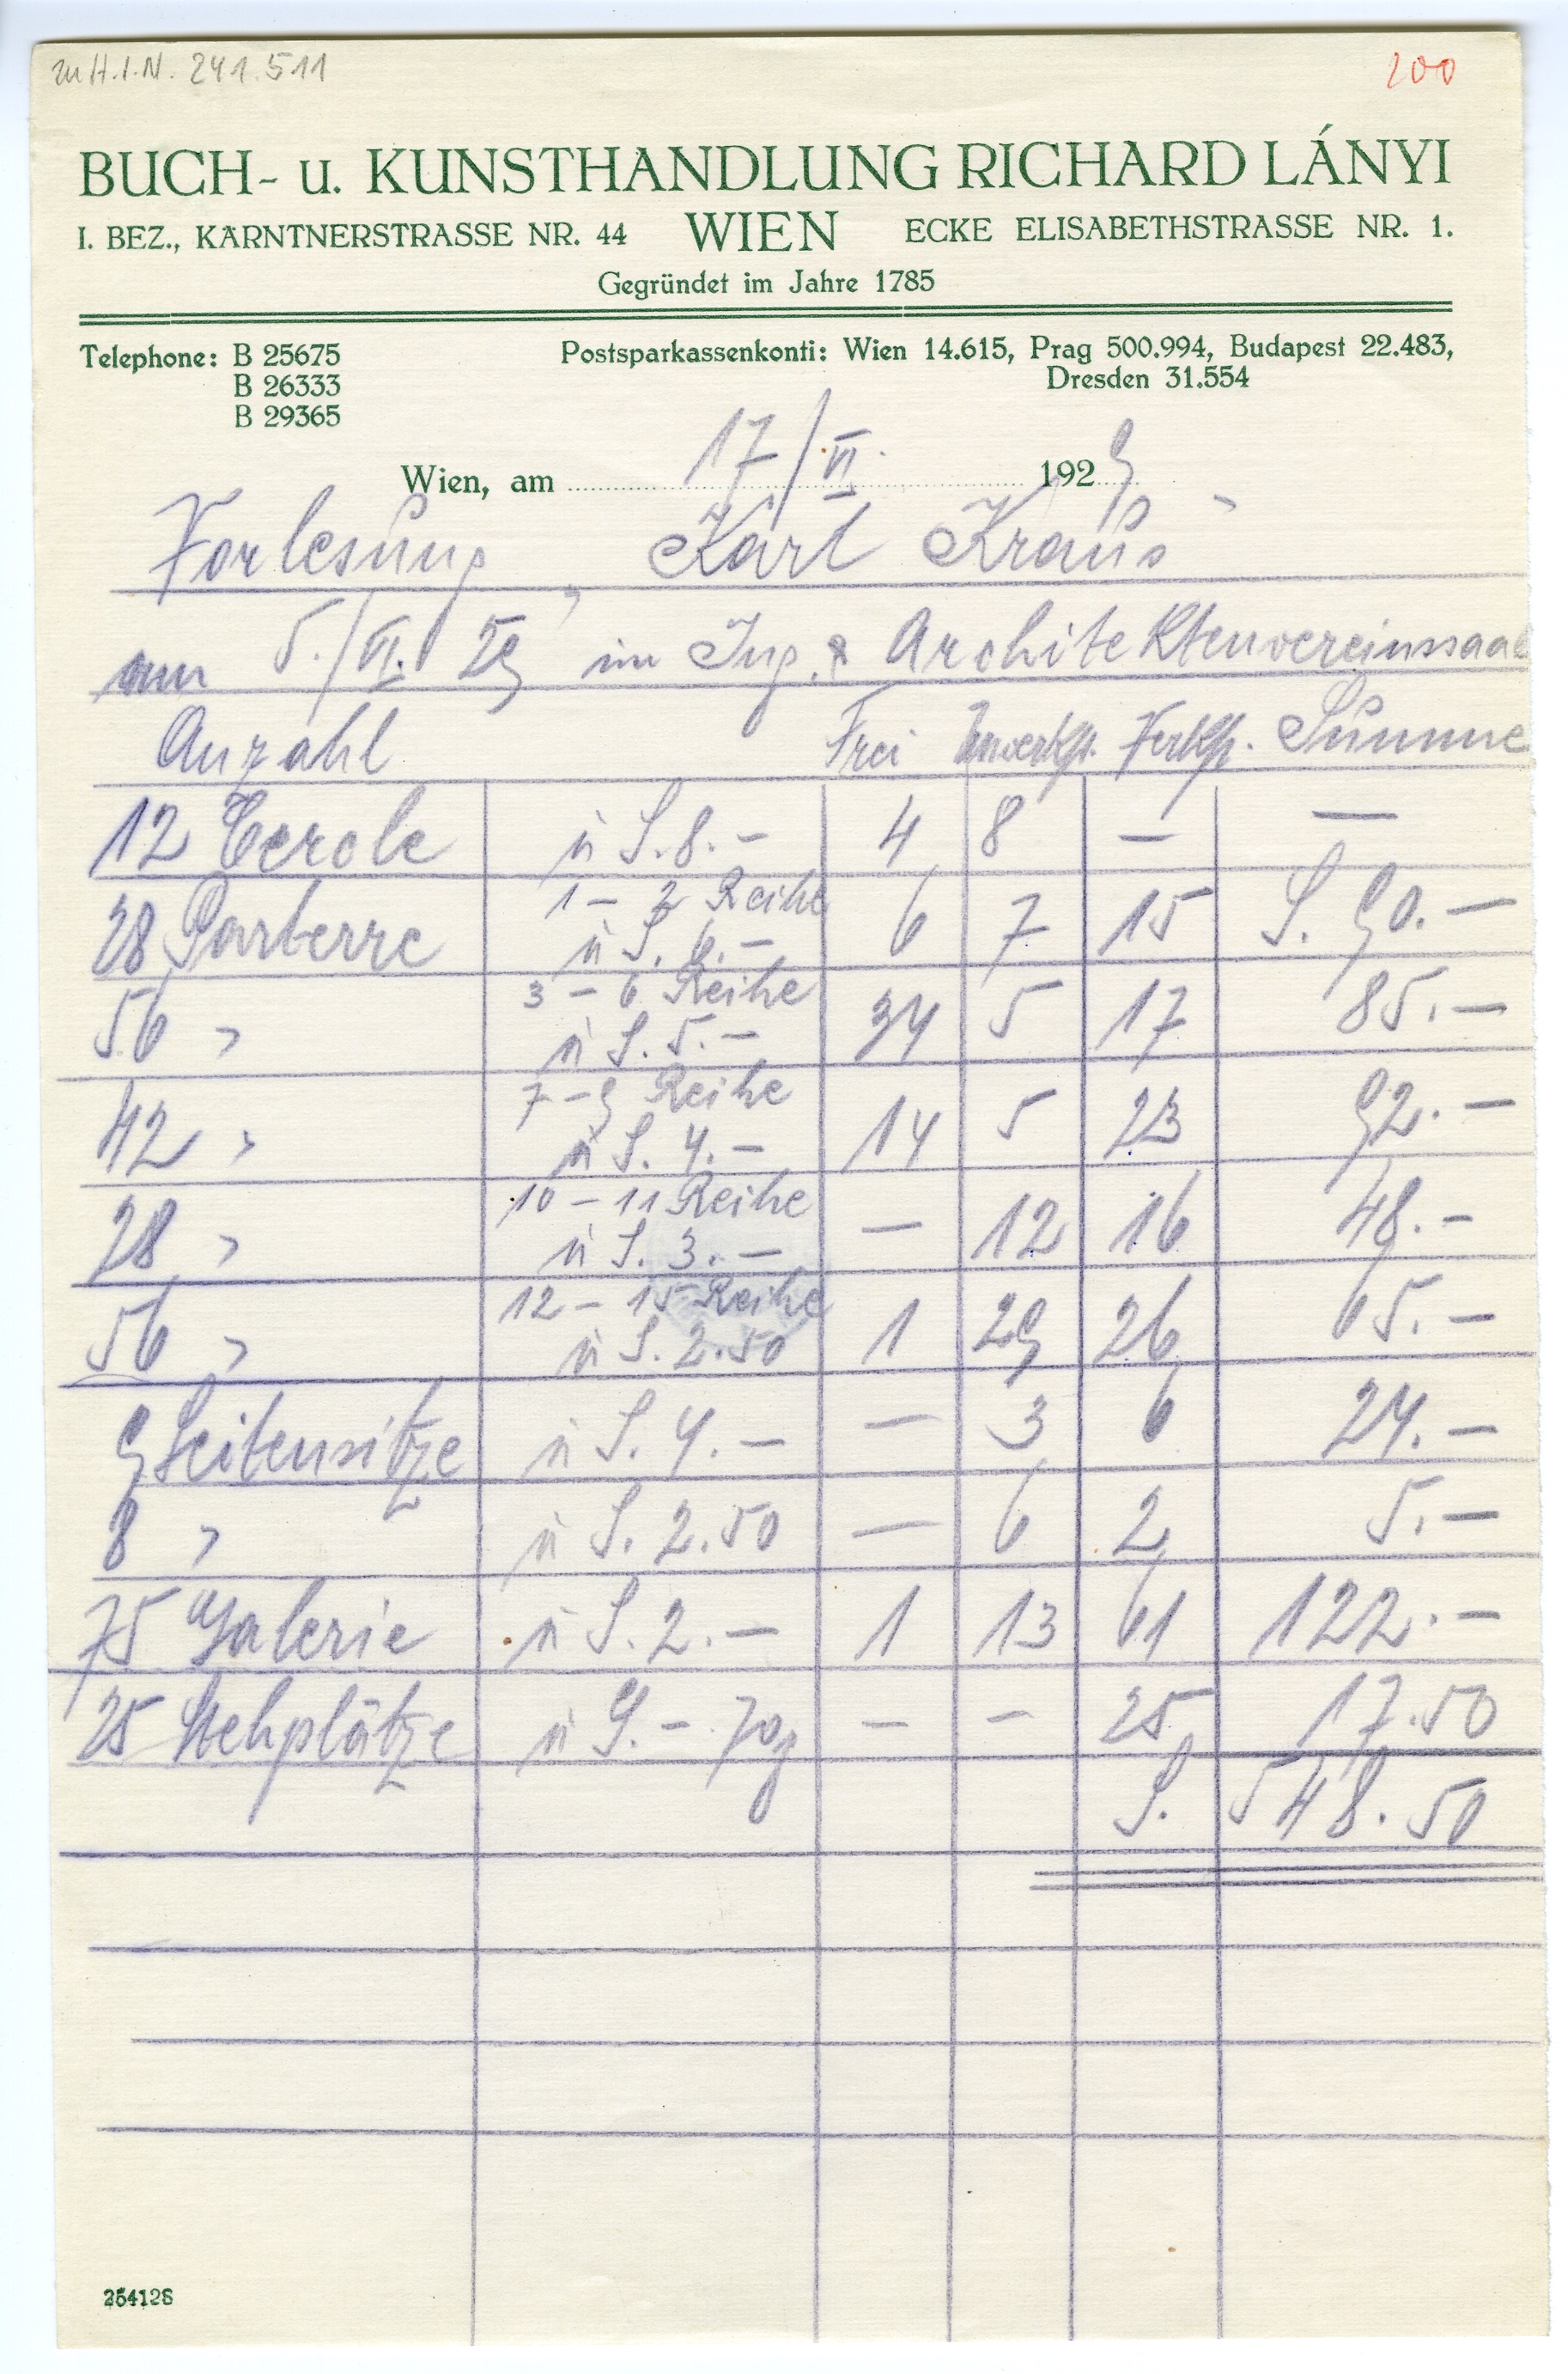 zu H.I.N. 241.511 200
BUCH- u. KUNSTHANDLUNG RICHARD LÁNYI
I. BEZ., KÄRNTNERSTRASSE NR. 44 WIEN ECKE ELISABETHSTRASSE NR. 1.
Gegründet im Jahre 1785
Telephone: B 25675 Postsparkassenkonti: Wien 14.615, Prag 500.994, Budapest 22.483,
B 26333 Dresden 31.554
B 29365
Wien, am 17/VI. 1929
Vorlesung „Karl Kraus"
am 5./VI. 29 im Ing. & Architektenvereinssaal
Anzahl Frei Unverkft. Verkft. Summe
12 Cercle à S. 8.— 4 8 — —
28 Parterre 1–2 Reihe à S. 6.— 6 7 15 S. 90.—
56 " 3–6 Reihe à S. 5.— 34 5 17 85.—
42 " 7–9 Reihe à S. 4.— 14 5 23 92.—
28 " 10–11 Reihe à S. 3.— — 12 16 48.—
56 " 12–15 Reihe à S. 2.50 1 29 26 65.—
9 Seitensitze à S. 4.— — 3 6 24.—
8 " à S. 2.50 — 6 2 5.—
75 Galerie à S. 2.— 1 13 61 122.—
25 Stehplätze à S. –.70g — — 25 17.50
S. 548.50
254128